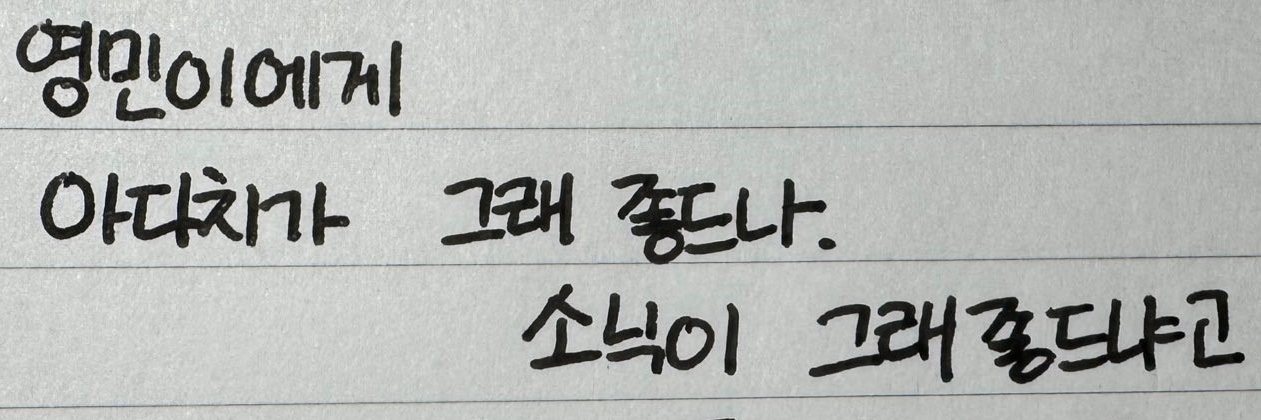 영민이에게
아다치가 그래 좋드나.
소닉이 그래 좋드냐고